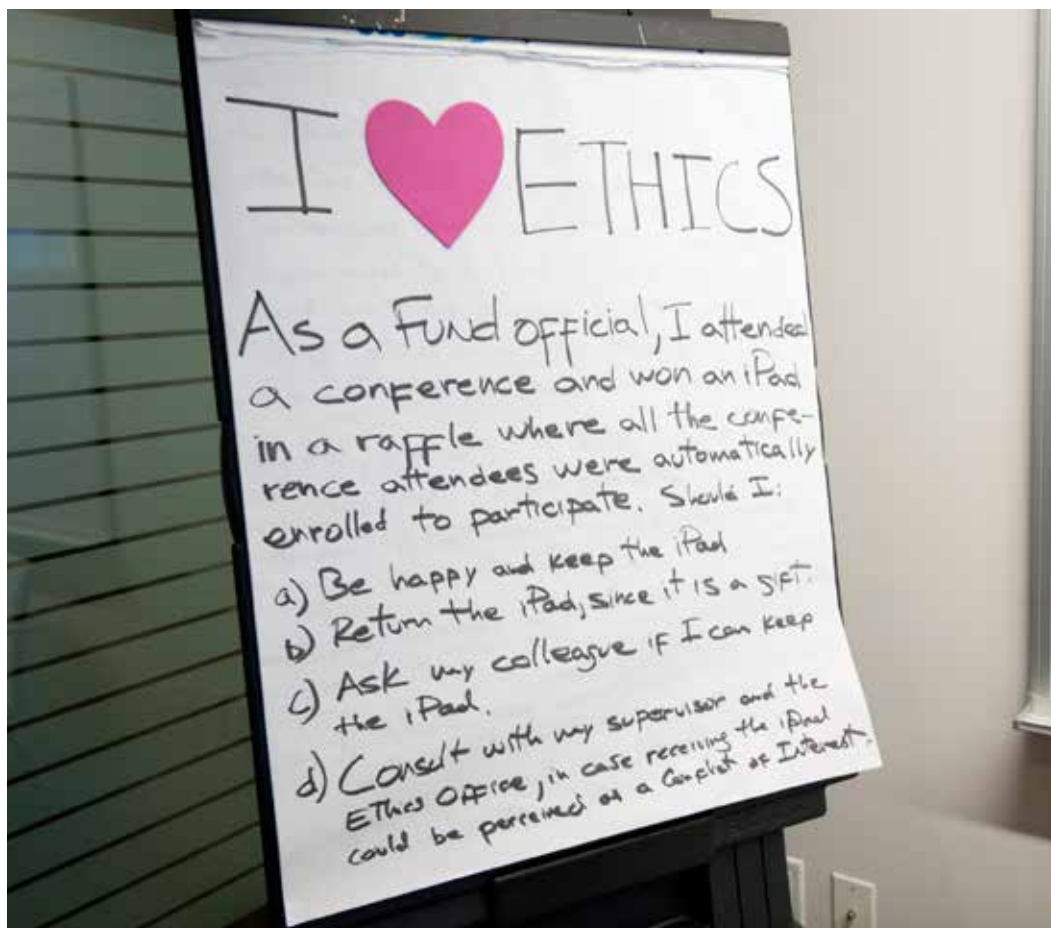 I ETHICS
As a Fund official, I attended
a conference and won an iPad
in a raffle where all the confe-
rence attendees were automatically
enrolled to participate. Should I:
a) Be happy and keep the iPad
b) Return the iPad, since it is a gift.
c) Ask my colleague if I can keep
the iPad.
d) Consult with my supervisor and the
Ethics Office, in case receiving the iPad
could be perceived as a Conflict of Interest.